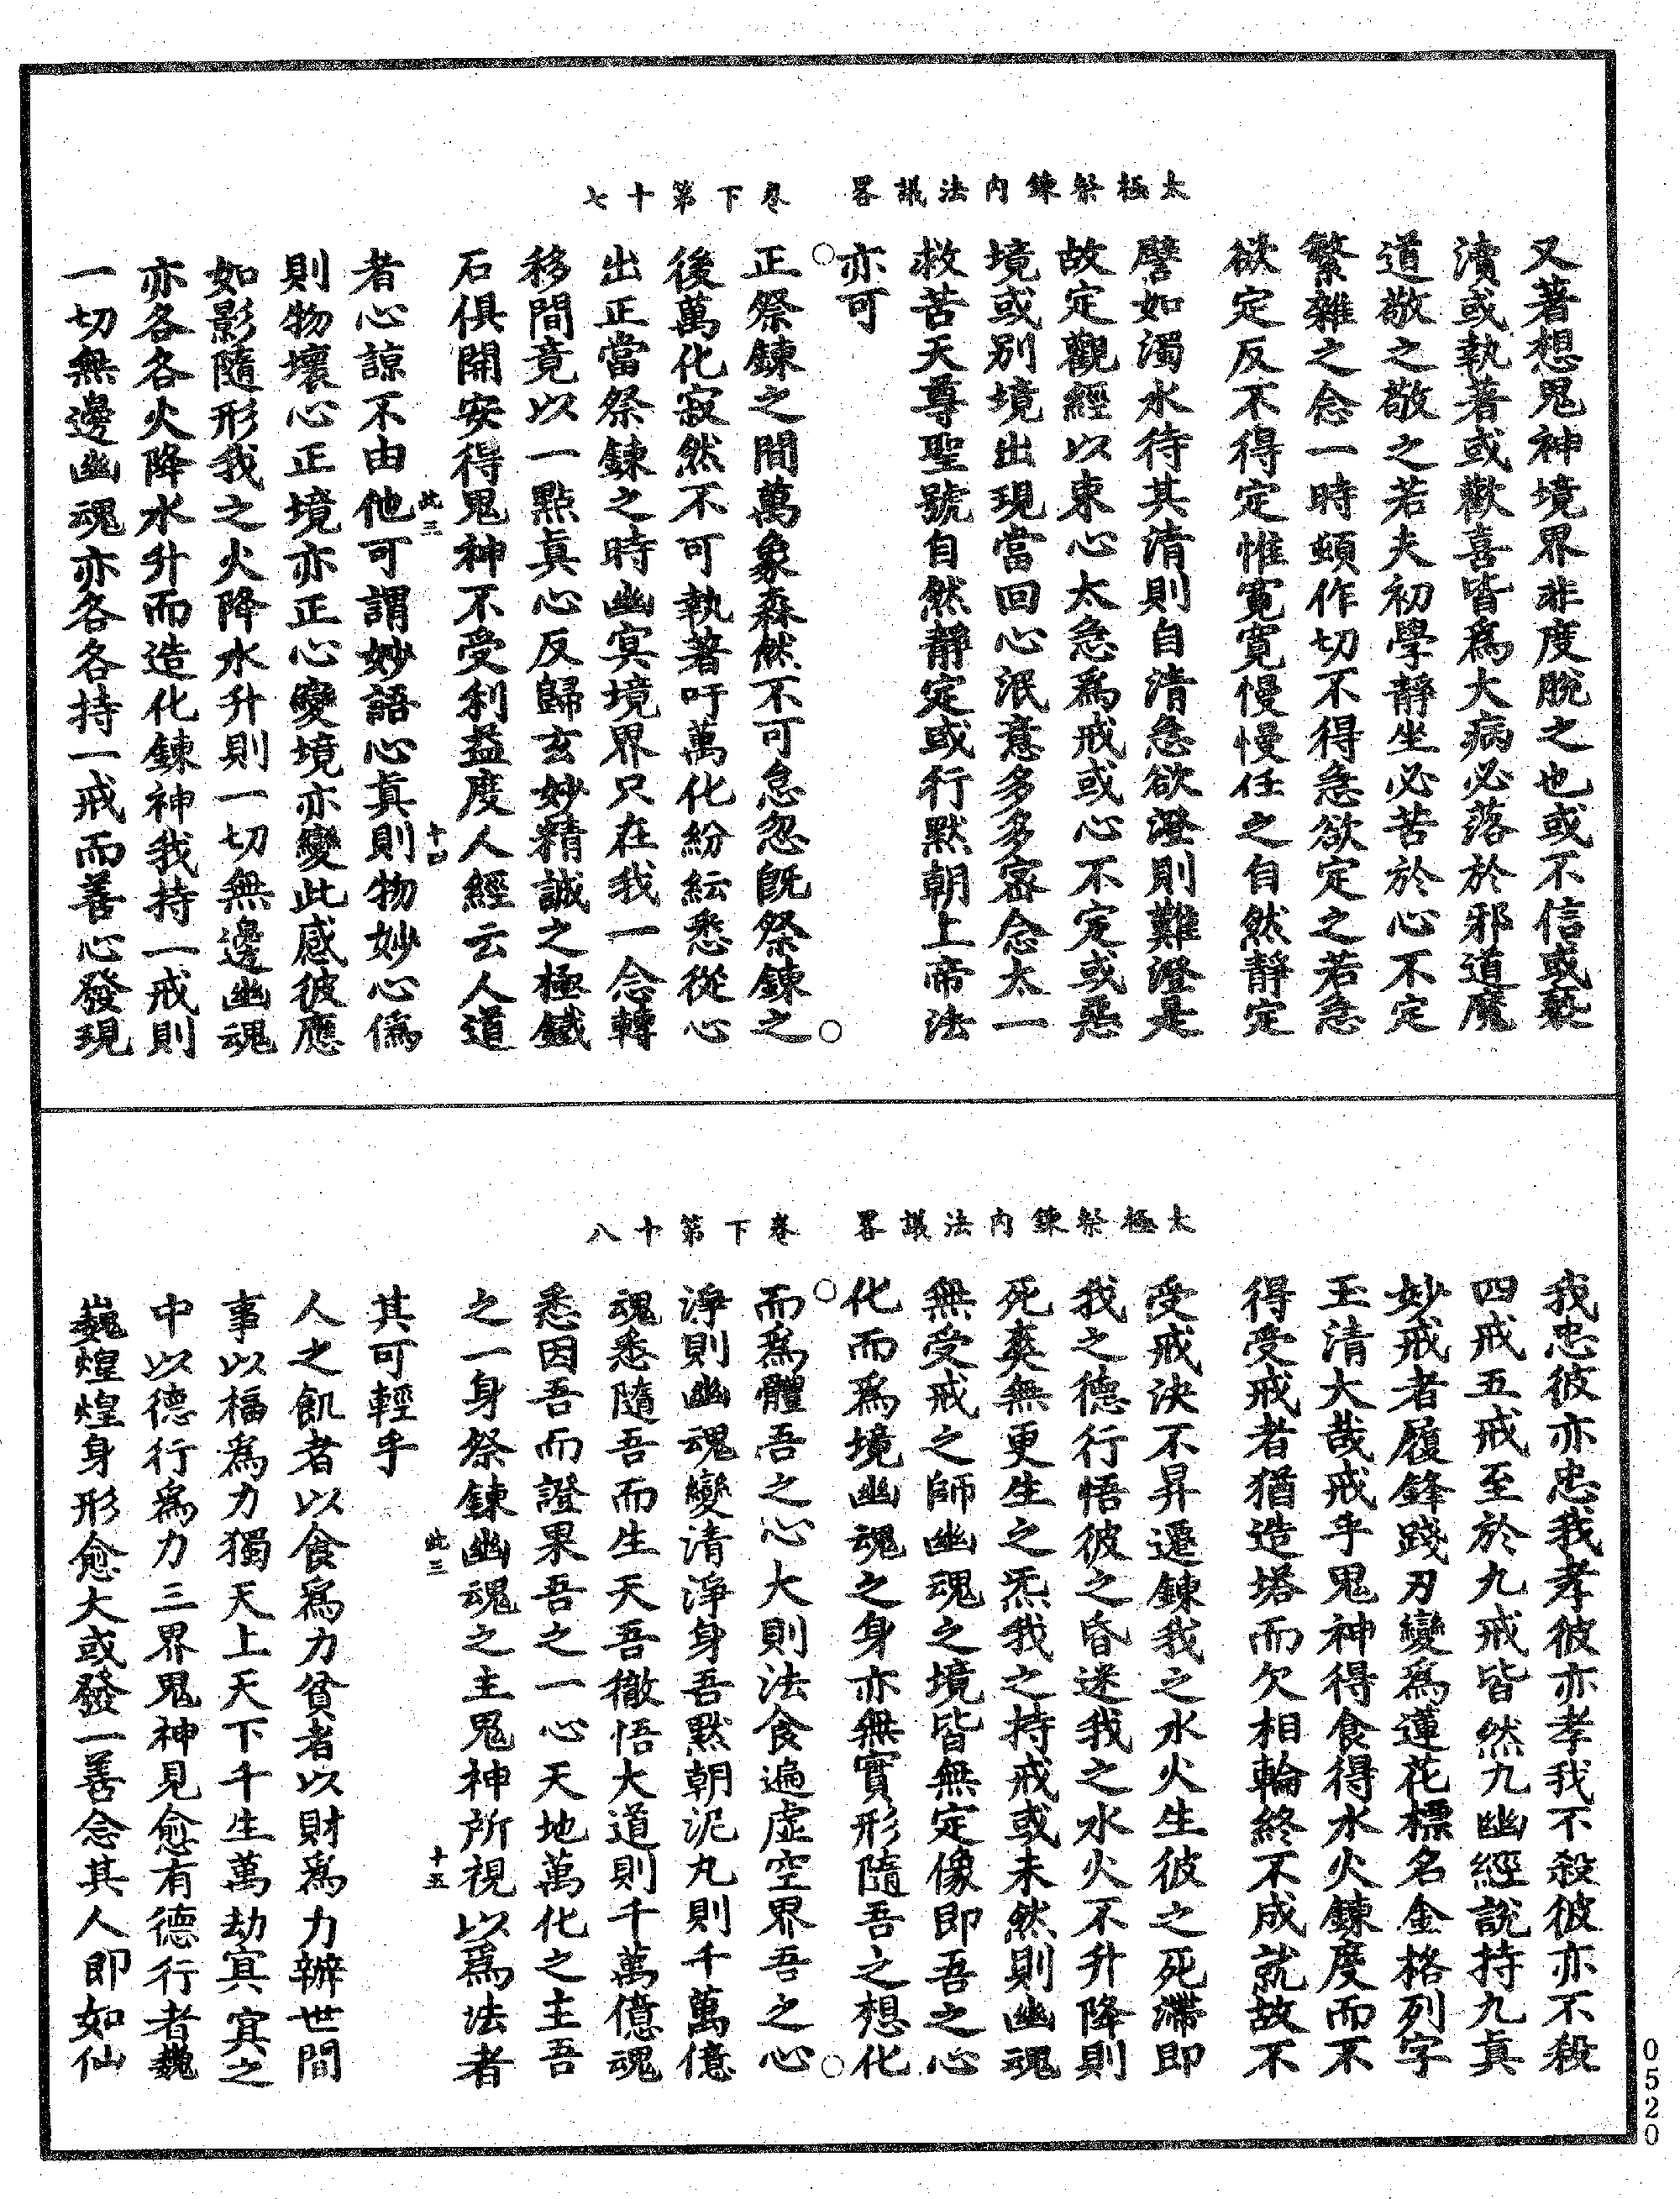 太極祭鍊內法議畧　卷下第十七
又著想鬼神境界非度脫之也或不信或褻
瀆或執著或歡喜皆爲大病必落於邪道魔
道敬之敬之若夫初學靜坐必苦於心不定
繁雜之念一時頓作切不得急欲定之若急
欲定反不得定惟寬寬慢慢任之自然靜定
譬如濁水待其清則自清急欲澄則難澄是
故定觀經以束心太急爲戒或心不定或惡
境或别境出現當回心泯意多多密念太一
救苦天尊聖號自然靜定或行默朝上帝法
亦可
正祭鍊之間萬象森然不可怠忽旣祭鍊之
後萬化寂然不可執著吁萬化紛紜悉從心
出正當祭鍊之時幽冥境界只在我一念轉
移間竟以一點眞心反歸玄妙精誠之極鐵
石俱開安得鬼神不受利益度人經云人道
此三　十四
者心諒不由他可謂妙語心眞則物妙心僞
則物壞心正境亦正心變境亦變此感彼應
如影隨形我之火降水升則一切無邊幽魂
亦各各火降水升而造化鍊神我持一戒則
一切無邊幽魂亦各各持一戒而善心發現
太極祭鍊內法議畧　卷下第十八
我忠彼亦忠我孝彼亦孝我不殺彼亦不殺
四戒五戒至於九戒皆然九幽經說持九眞
妙戒者履鋒踐刃變爲蓮花標名金格列字
玉清大哉戒乎鬼神得食得水火鍊度而不
得受戒者猶造塔而欠相輪終不成就故不
受戒決不昇遷鍊我之水火生彼之死滯即
我之德行悟彼之昏迷我之水火不升降則
死㷼無更生之炁我之持戒或未然則幽魂
無受戒之師幽魂之境皆無定像即吾之心
化而爲境幽魂之身亦無實形隨吾之想化
而爲體吾之心大則法食遍虛空界吾之心
淨則幽魂變清淨身吾默朝泥丸則千萬億
魂悉隨吾而生天吾徹悟大道則千萬億魂
悉因吾而證果吾之一心天地萬化之主吾
之一身祭鍊幽魂之主鬼神所視以爲法者
此三　十五
其可輕乎
人之飢者以食爲力貧者以財爲力辦世間
事以福爲力獨天上天下千生萬劫冥冥之
中以德行爲力三界鬼神見愈有德行者巍
巍煌煌身形愈大或發一善念其人即如仙
0520